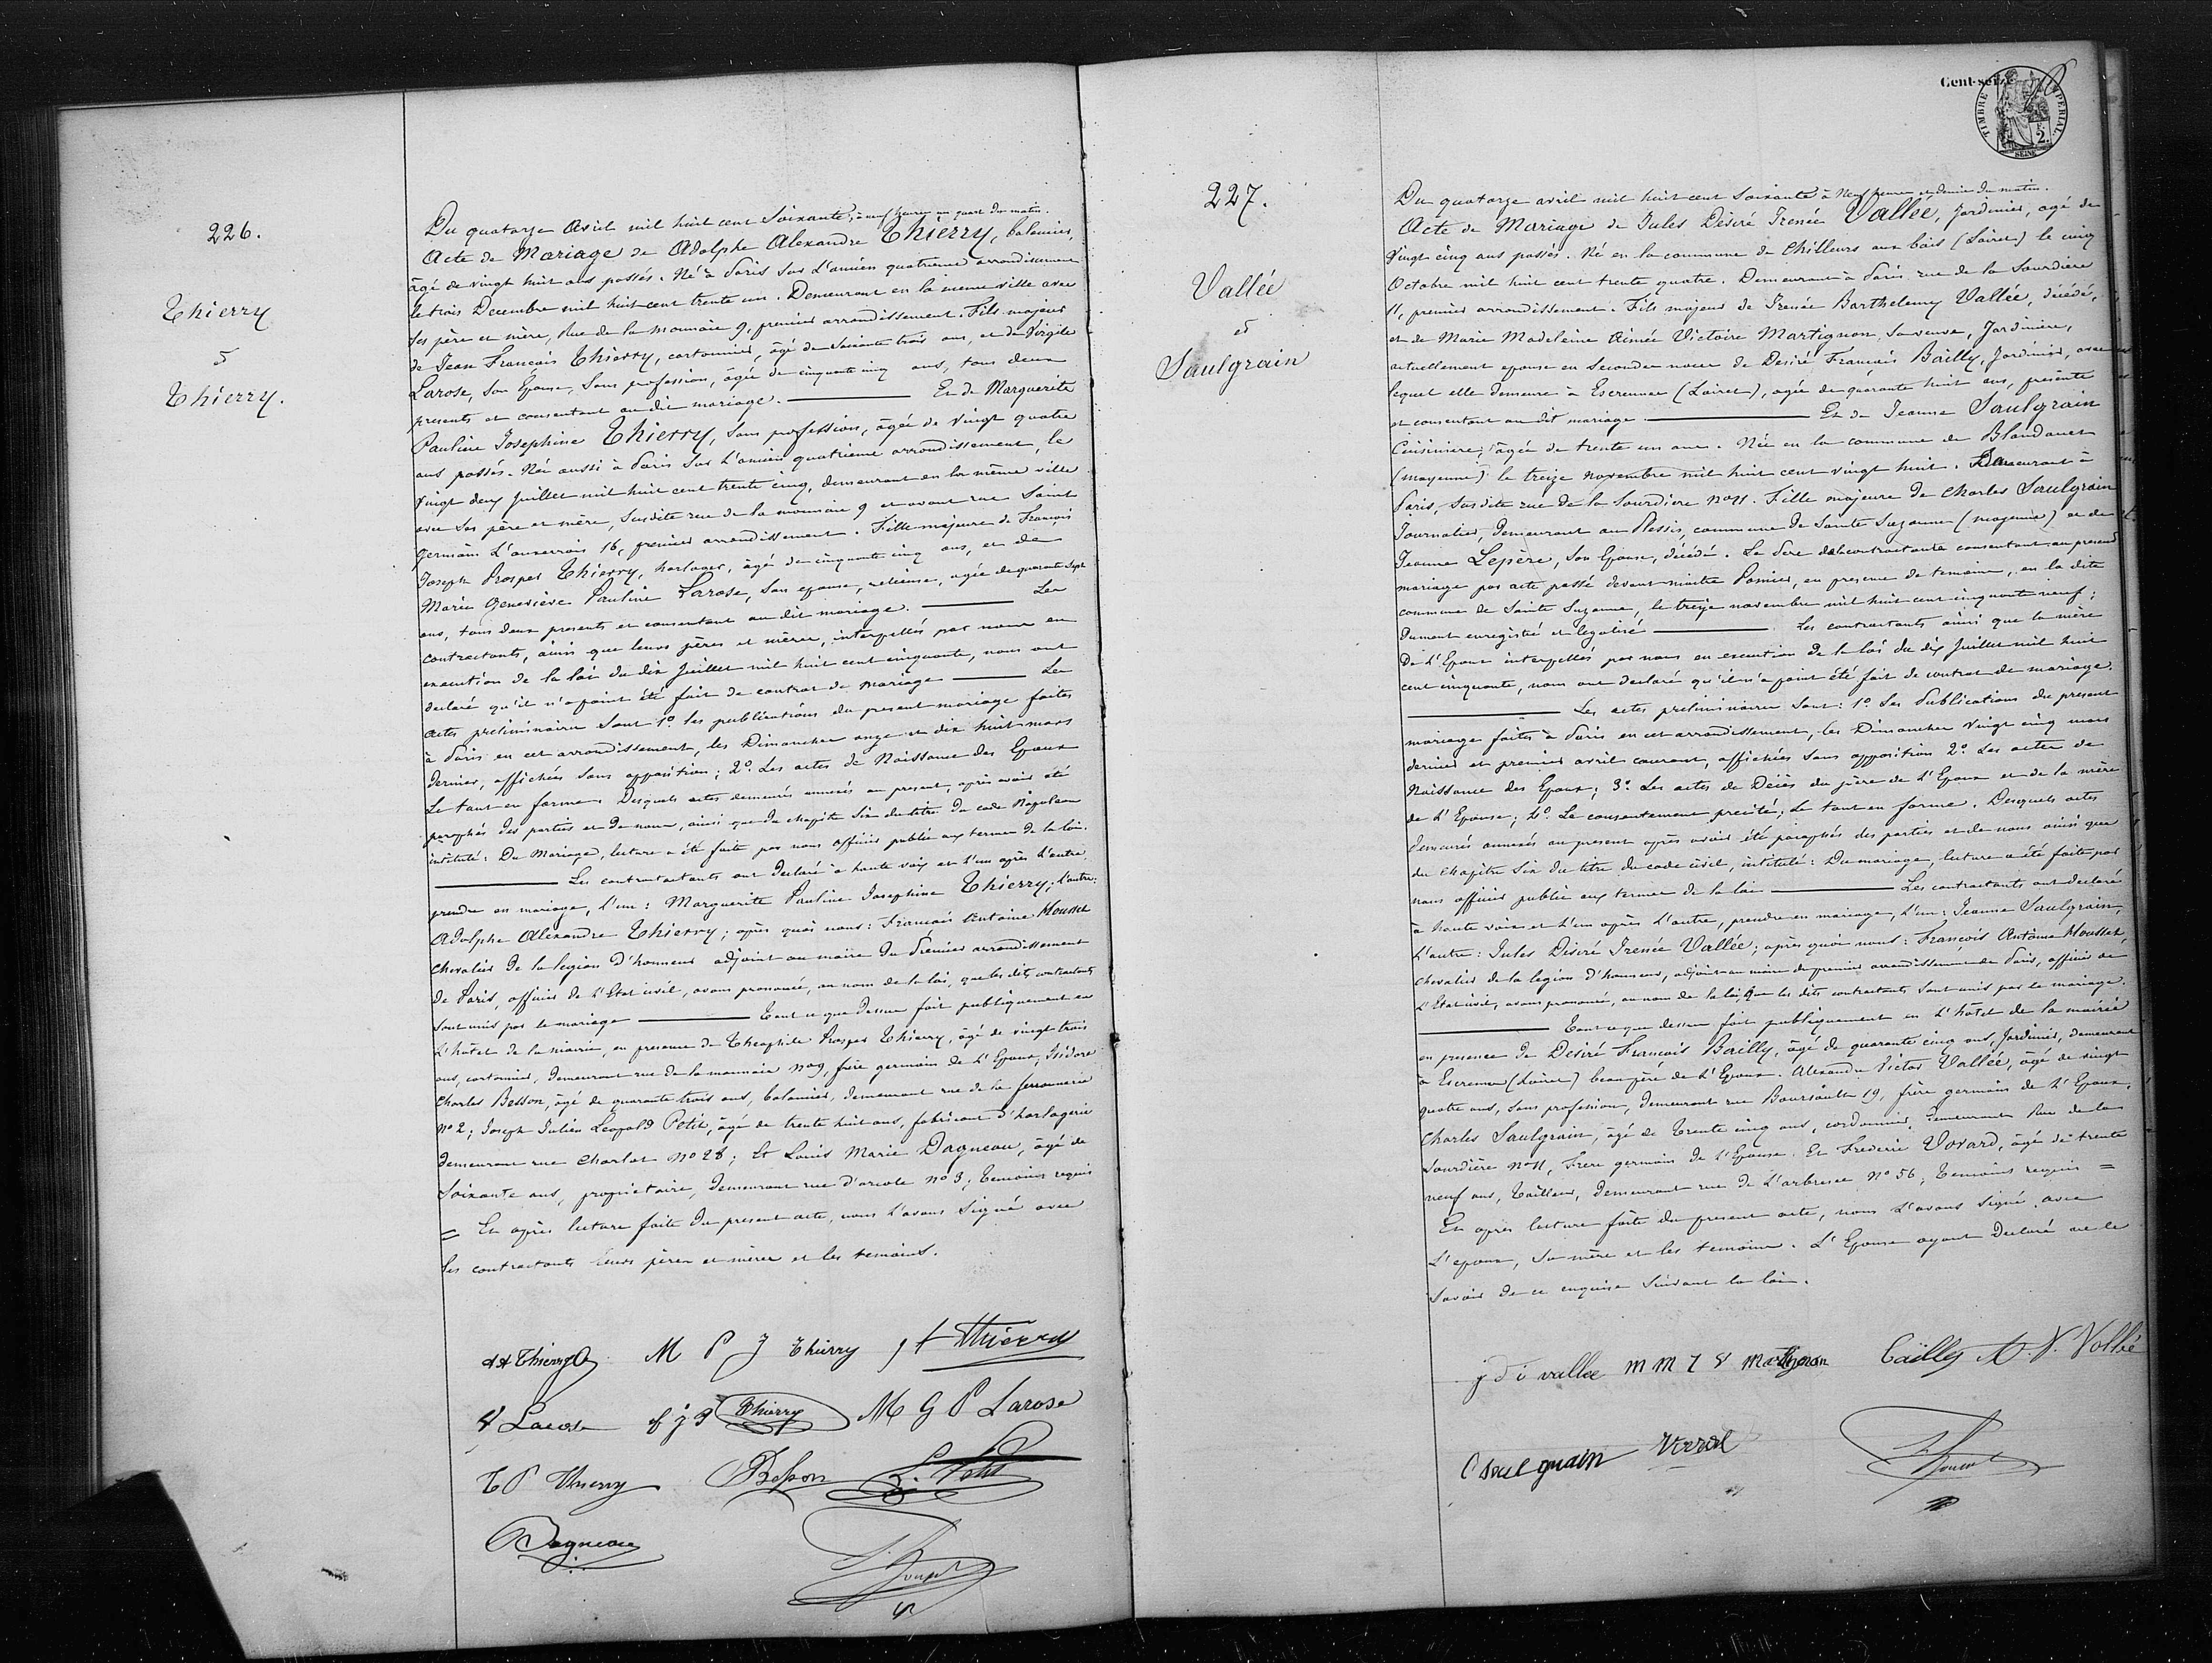 226.
Thierry
&
Thierry.
Du quatorze Avril mil huit cent Soixante, à neuf heures un quart du matin.
Acte de Mariage de Adolphe Alexandre Thierry,
âgé de vingt huit ans passés. Né à Paris sur l'ancien quatrième arrondissement
le trois Decembre mil huit cent trente un. Demeurant en la meme ville avec
ses père et mère, Rue de la monnaie 9, premier arrondissement. Fils majeur
de Jean Francois Thierry, cartonnier, âgé de Soixante trois ans, et de Virgile
Larose, son Epouse, Sans profession, âgée de cinquante cinq ans, tous deux
presents et consentant au dit mariage. Et de Marguerite
Pauline Josephine Thierry, Sans profession, âgée de Vingt quatre
ans passés. Née aussi à Paris sur l'ancien quatrieme arrondissement, le
Vingt deux Juillet mil huit cent trente cinq, demeurant en la même ville
avec ses père et mère, susdite rue de la monnaie 9 et avant rue Saint
Germain L'auxerrois 16, premier arrondissement. Fille majeure de François
Joseph Prosper Thierry, horloger, âgé de cinquante cinq ans, et de
Marie Geneviève Pauline Larose, son epouse, agée de quarante Sept
ans, tous deux presents et consentant au dit mariage. Les
contractants, ainsi que leurs pères et mères, interpellés par nous en
execution de la loi du dix Juillet mil huit cent cinquante, nous ont
declaré qu'il n'a point été fait de contrat de mariage Les
actes preliminaires sont 1º les publications du present mariage faites
à Paris en cet arrondissement, les Dimanches onze et dix huit mars
dernier, affichées sans opposition; 2º. Les actes de Naissance des Epoux
Le tout en forme. Desquels actes demeurés annexés au present, après avoir été
paraphés des parties et de nous, ainsi que du chapitre Six du titre du code Napoleon
intitulé: Du Mariage, lecture a été faite par nous officier public aux termes de la loi.
Les contractants ont declaré à haute voix et l'un après l'autre
prendre en mariage, l'un: Marguerite Pauline Josephine Thierry; l'autre:
Adolphe Alexandre Thierry; après quoi nous: Francois Antoine Mousset
chevalier de la legion d'honneur adjoint au maire du Premier arrondissement
de Paris, officier de l'Etat civil, avons prononcé, au nom de la loi, que les dits contractants
sont unis par le mariage Tout ce que dessus fait publiquement en
l'hôtel de la mairie, en presence de Theophile Prosper Thierry, âgé de vingt trois
ans, cartonnier, demeurant rue de la monnaie nº 9, frère germain de l'Epoux, Isidore
Charles Besson, âgé de quarante trois ans, demeurant rue de la ferronnerie
nº 2; Joseph Julien Leopold Petit, âgé de trente huit ans, fabricant d'horlogerie
demeurant rue Charlot nº 28; Et Louis Marie Dagneau, âgé de
Soixante ans, proprietaire, demeurant rue d'arcole nº 3; temoins requis
= Et après lecture faite du present acte, nous l'avons signé avec
les contractants leurs pères et mères et les temoins.
M P J Thierry Thierry
V Larose f j P Thierry M G P Larose
T P Thierry Besson L. Petit
Dagneau
Cent-seize
TIMBRE IMPERIAL
2
SEINE
227.
Vallée
et
Saulgrain
Du quatorze avril mil huit cent Soixante à Neuf heures et demie du matin.
Acte de Mariage de Jules Désiré Irenée Vallée, Jardinier, agé de
Vingt cinq ans passés. Né en la commune de Chilleurs aux bois (Loiret) le cinq
Octobre mil huit cent trente quatre. Demeurant à Paris rue de la Sourdiere
11, premier arrondissement. Fils majeur de Irenée Barthelemy Vallée, décédé,
et de Marie Madeleine Aimée Victoire Martignon, sa veuve, Jardiniere,
actuellement epouse en secondes noces de Desiré François Bailly, Jardinier, avec
lequel elle demeure à Escrennes (Loiret), agée de quarante huit ans, présente
et consentant au dit mariage Et de Jeanne Saulgrain
Cuisiniere, âgée de trente un ans. Née en la commune de Blandouet
(mayenne) le treize novembre mil huit cent vingt huit. Demeurant à
Paris, susdite rue de la Sourdiere nº 11. Fille majeure de Charles Saulgrain
Journalier, demeurant au Plessis, commune de Sainte Suzanne (mayenne) et de
Jeanne Lepère, son Epouse, décédé. Le Pere de la contractante consentant au present
mariage par acte passé devant maitre Pomier, en presence de temoins, en la dite
commune de Sainte Suzanne, le treize novembre mil huit cent cinquante neuf;
dument enregistré et legalisé Les contractants ainsi que la mère
de l'Epoux interpellés par nous en execution de la loi du dix Juillet mil huit
cent cinquante, nous ont declaré qu'il n'a point été fait de contrat de mariage.
Les actes preliminaires sont: 1º Les Publications du present
mariage faites à Paris en cet arrondissement, les Dimanches Vingt cinq mars
dernier et premier avril courant, affichées sans opposition 2º. Les actes de
Naissance des Epoux; 3º. Les actes de Décès du père de l'Epoux et de la mère
de l'Epouse; 4º. Le consentement precité; Le tout en forme. Desquels actes
demeurés annexés au present après avoir été paraphés des parties et de nous ainsi que
du chapitre Six du titre du code civil, intitulé: Du mariage, lecture a été faite par
nous officier public aux termes de la loi Les contractants ont declaré
à haute voix et l'un après l'autre, prendre en mariage, l'un: Jeanne Saulgrain,
l'autre: Jules Désiré Irenée Vallée; après quoi nous: François Antoine Mousset,
chevalier de la legion d'honneur, adjoint au maire du premier arrondissement de Paris, officier de
l'Etat civil, avons prononcé, au nom de la loi, que les dits contractants sont unis par le mariage.
Tout ce que dessus fait publiquement en l'hotel de la mairie
en presence de Desiré François Bailly, âgé de quarante cinq ans, Jardinier, demeurant
à Escrennes (Loiret) beau père de l'Epoux. Alexandre Victor Vallée, âgé de vingt
quatre ans, sans profession, demeurant rue Boursault 19, frère germain de l'Epoux,
Charles Saulgrain, âgé de trente cinq ans, cordonnier, demeurant Rue de la
Sourdière nº 11, Frere germain de l'Epouse. Et Frederic Vorard, âgé de trente
neuf ans, Tailleur, demeurant rue de l'arbresec nº 56; temoins requis =
Et après lecture faite du present acte, nous l'avons signé avec
l'epoux, sa mère et les temoins. L'Epouse ayant declaré ne le
savoir de ce enquise suivant la loi.
j d i vallee m m Martignon Bailly A. V. Vallée
C Saulgrain